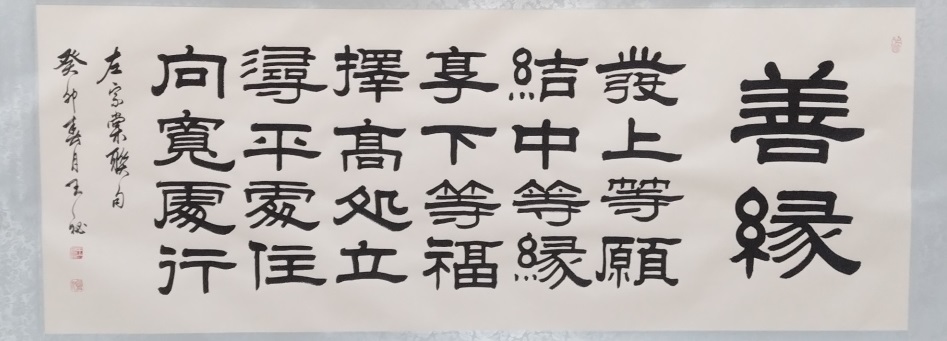 善緣
發上等願
結中等緣
享下等福
擇高处立
尋平處住
向寬處行
左宗棠聯句
癸卯春月王